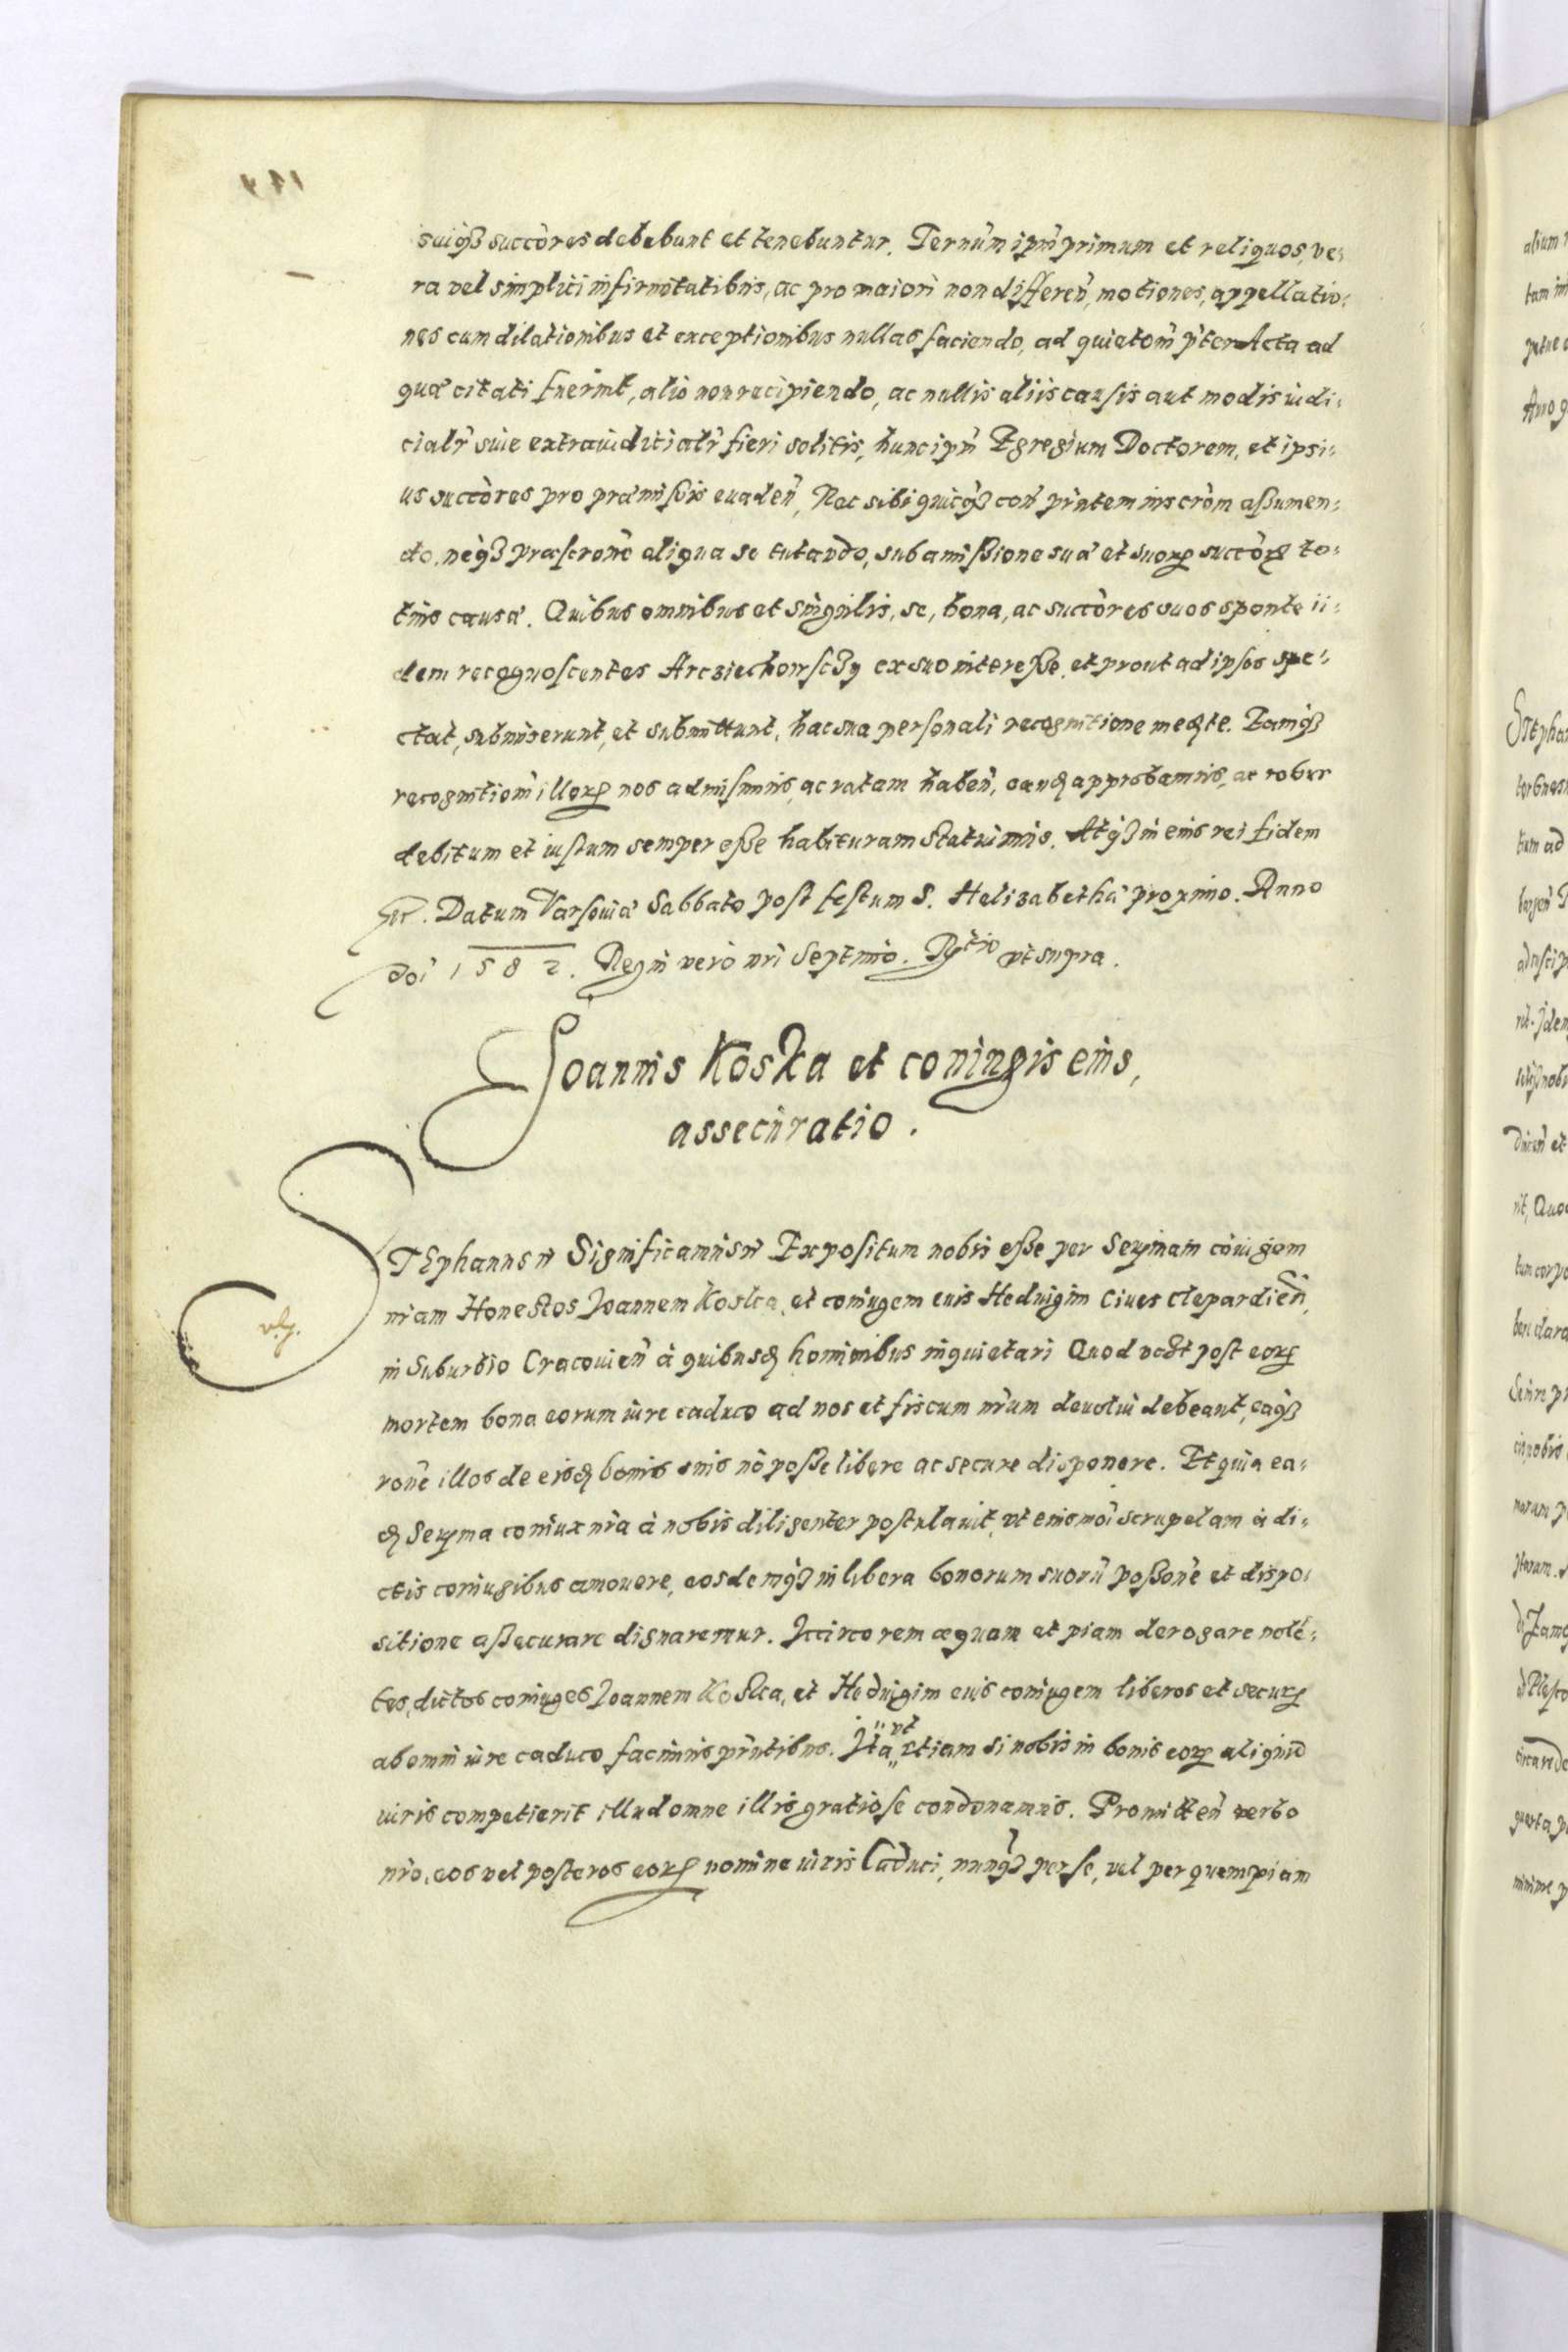 suiqȝ succòres debebunt et tenebuntur. Ternũm ipm̃ primum et reliquos, ve:
ra vel simplici infirmitatibus, ac pro maiori non differeñ, motiones, appellatio:
nes cum dilationibus et exceptionibus nullas faciendo, ad quietom̃ p̃ter Acta ad
quæ citati fuerint, alio non recipiendo, ac nullis aliis causis aut modis iudi:
cialr̃ siue extraiudicialr̃ fieri solitis, hunc ipm̃ Egregium Doctorem, et ipsi:
us succòres pro præmissis euadeñ, Nec sibi quicqȝ coñ pñtem inscròm assumen:
do, neqȝ præscronẽ aliqua se tutando, sub amissione suæ et suorꝝ succòrꝝ to:
tius causæ. Quibus omnibus et singulis, se, bona, ac succòres suos sponte ii:
dem recognoscentes Arcziechowsczy ex suo interesse, et prout ad ipsos spe:
ctat, submiserunt, et submittunt, hac sua personali recognitione medte. Eamqȝ
recognitiom̃ illorꝝ nos admisimus, ac ratam habeñ, eandꝫ approbamus, ac robur
debitum et iustum semper esse habituram statuimus. Atqȝ in eius rei fidem
etc. Datum Varsouiæ Sabbato post festum S. Helizabethæ proximo. Anno
Doi 1582. Regni vero nri Septimo. Rȩtio vt supra.
Joannis Koska et coniugis eius,
assecuratio.
STEphanus etc Significamus etc Expositum nobis esse per Serȩnam cõiugem
nr̃am Honestos Joannem Koska, et coniugem euis Heduigim Ciues Clepardieñ,
in Suburbio Cracouieñ à quibusdꝫ hominibus inquietari Quod post eorꝝ
mortem bona eorum iure caduco ad nos et fiscum nr̃um deuolui debeant, eaqȝ
ronẽ illos de eisdꝫ bonis suis nõ posse libere ac secure disponere. Et quia ea:
dꝫ Serȩma coniux nr̃a à nobis diligenter postulauit, vt eiusmõi scrupulam à di:
ctis coniugibus amouere, eosdemqȝ in libera bonorum suorũ possonẽ et dispo:
sitione assecurare dignaremur. Iccirco rem æquam et piam derogare nolẽ:
tes, dictos coniuges Joannem Koska, et Heduigim euis coniugem liberos et securꝝ
ab omni iure caduco facimus pñtibus. Ita vt etiam si nobis in bonis eorꝝ aliquid
iuris competierit illud omne illis gratiose condonamus. Promitteñ verbo
nr̃o, eos vel posteros eorꝝ nomine iuris Caduci, nunqȝ per se, vel per quempiam